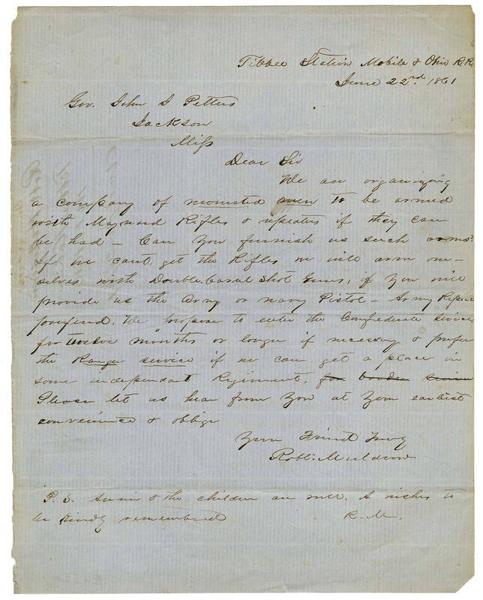 Tibbee Station Mobile & Ohio R.R.
June 22nd 1861
Gov. John J Pettus
Jackson
Miss
Dear Sir
We are organizing
a company of mounted men to be armed
with Maynard Rifles & repeaters if they can
be had – Can you furnish us such arms?
If we cant get the Rifles we will arm our-
selves with Double barrel Shot Guns, if you will
provide us the Army or navy Pistol – Army
prefered. We propose to enter the Confederate service
for twelve months or longer if necessary & prefer
the Ranger service if we can get a place in
some independant Regiment, for border service
Please let us hear from you at your earliest
convenience & oblige
Your Friend Truly
Robt. Muldrow
P.S. Annie & the children are well, & wishes to
be kindly remembered R. M.